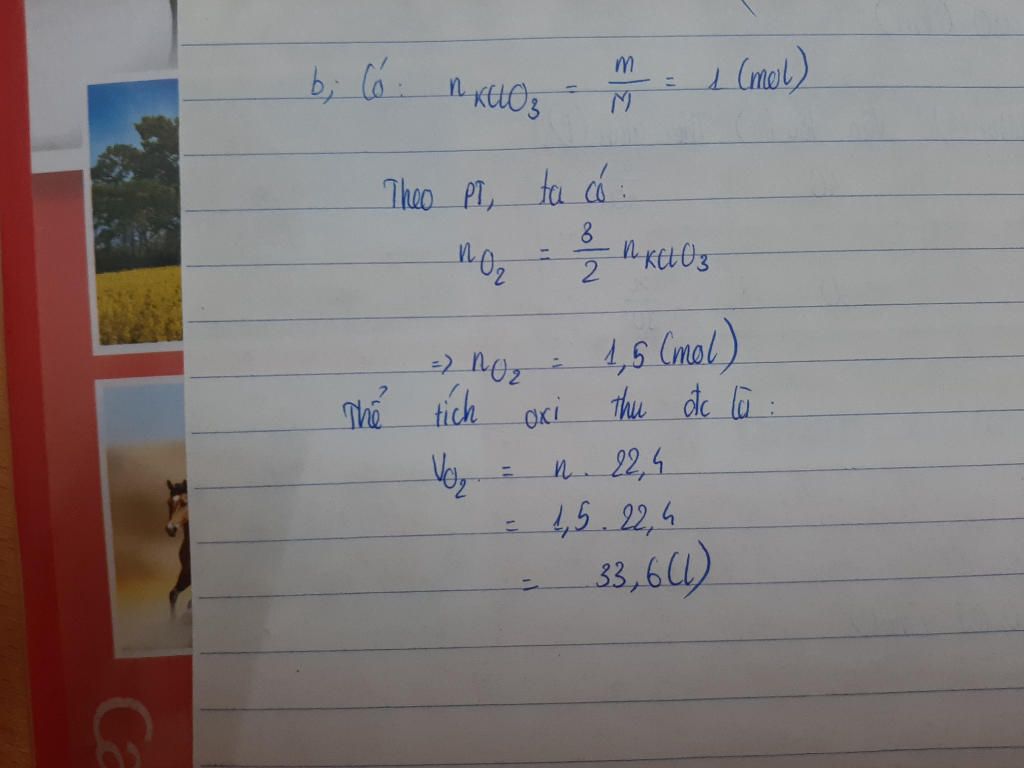 b; Có: n KClO3 = m/M = 1 (mol)
Theo PT, ta có:
n O2 = 3/2 n KClO3
=> n O2 = 1,5 (mol)
Thể tích oxi thu đc là:
V O2 = n . 22,4
= 1,5 . 22,4
= 33,6 (l)
Ca